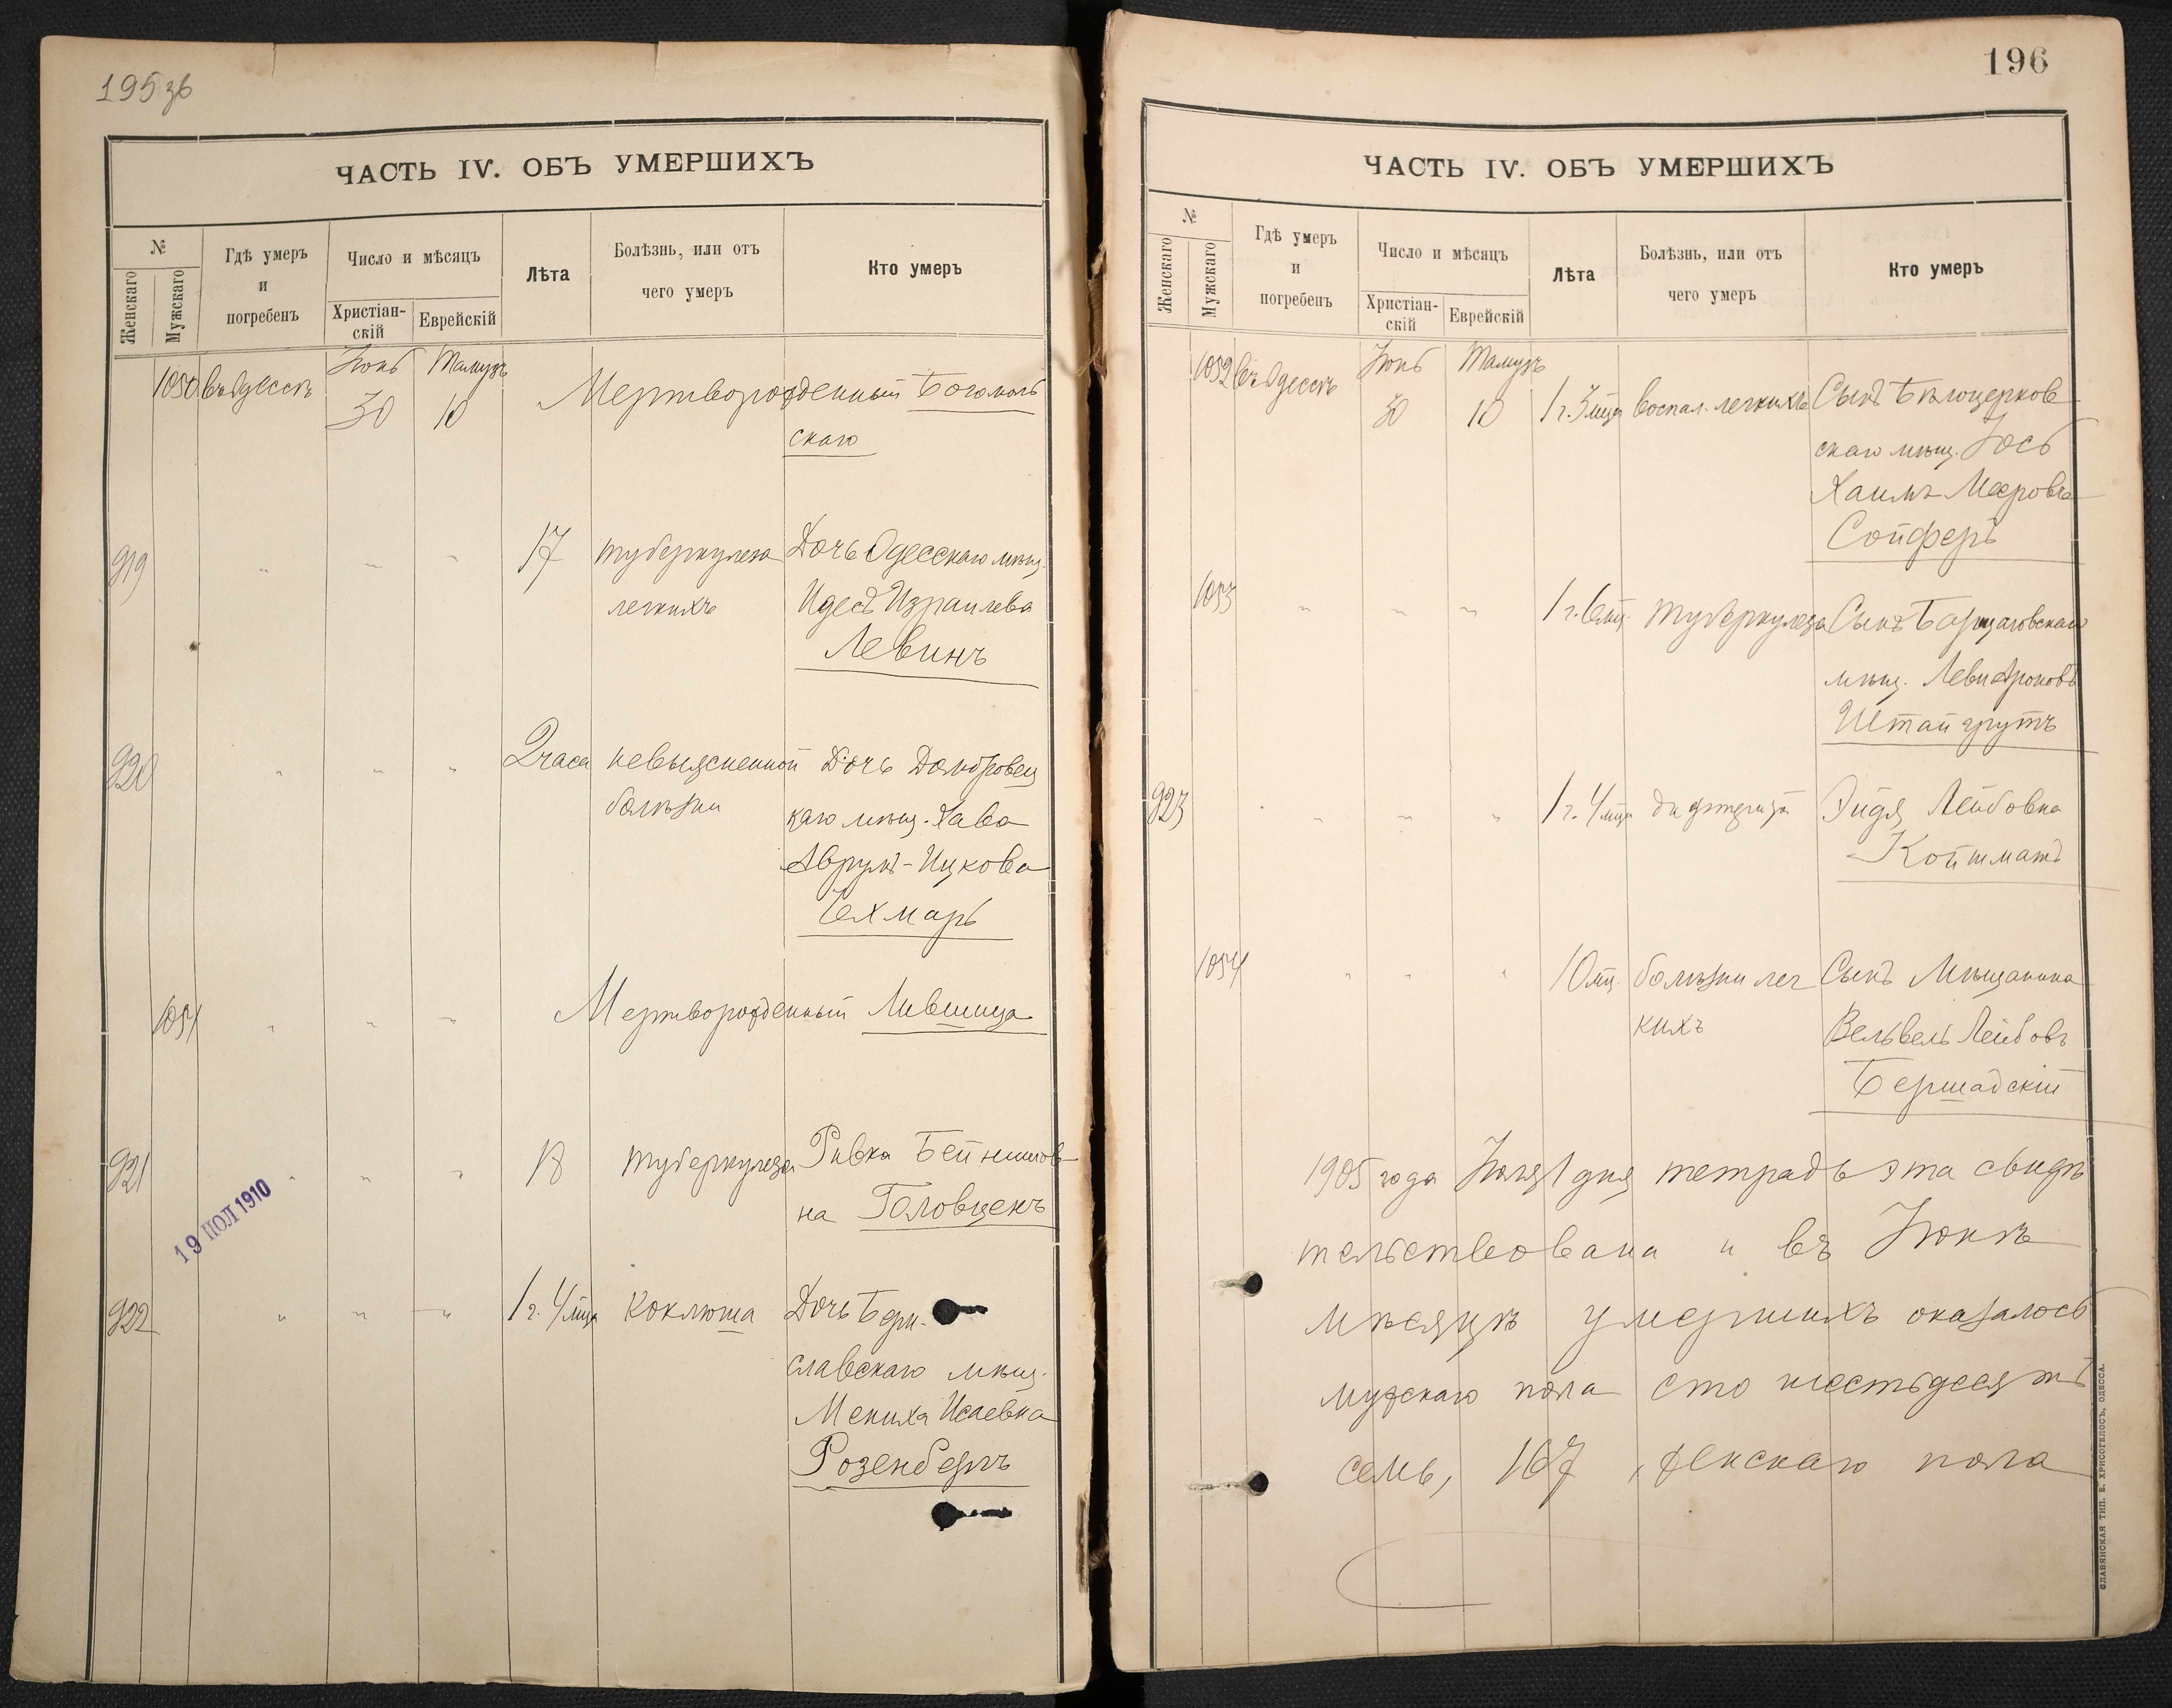 195 зв
ЧАСТЬ IV. ОБЪ УМЕРШИХЪ
№
Женскаго
Мужскаго
Гдѣ умеръ
и
погребенъ
Число и мѣсяцъ
Христіан-
скій
Еврейскій
Лѣта
Болѣзнь, или отъ
чего умеръ
Кто умеръ
1050 въ Одессѣ Іюнь Тамузъ
30 10 Мертворожденный Богомоль
скаго
919 " " " 17 туберкулеза Дочь Одесскаго мѣщ.
легкихъ Идесъ Израилева
Левинъ
920 " " " 2 часа невыясненной Дочь
болѣзни каго мѣщ. Хава
Аврумъ-Ицкова
Бехмаръ
1051 " " " Мертворожденный Лившица
921 " " " 18 туберкулеза Ривка Бейнишов
на Головценъ
19 ИЮЛ 1910
922 " " " 1 г. 4 мца Коклюша Дочь Бери-
славскаго мѣщ.
Мениха Исаевна
Розенбергъ
196
ЧАСТЬ IV. ОБЪ УМЕРШИХЪ
№
Женскаго
Мужскаго
Гдѣ умеръ
и
погребенъ
Число и мѣсяцъ
Христіан-
скій
Еврейскій
Лѣта
Болѣзнь, или отъ
чего умеръ
Кто умеръ
1052 въ Одессѣ Іюнь Тамузъ
30 10 1 г. 3 мца воспал. легкихъ Сынъ Бѣлоцерков
скаго мѣщ. Іось
Хаимъ Мееровъ
Сойферъ
1053 " " " 1 г. 6 мц. туберкулеза Сынъ Борщаговскаго
мѣщ. Леви Ароновъ
Штайгрутъ
923 " " " " 1 г. 4 мца дифтерита Эйдя Лейбовна
Койтманъ
1054 " " " 10 мц. болѣзни лег Сынъ Мѣщанина
кихъ Вельвель Лейбовъ
Бершадскій
1905 года Іюля 1 дня тетрадь эта свидѣ
тельствована и въ Іюнѣ
мѣсяцѣ умершихъ оказалось
мужскаго пола сто шестьдесятъ
семь, 167, женскаго пола
СЛАВЯНСКАЯ ТИП. Е. ХРИСОГЕЛОСЪ, ОДЕССА.